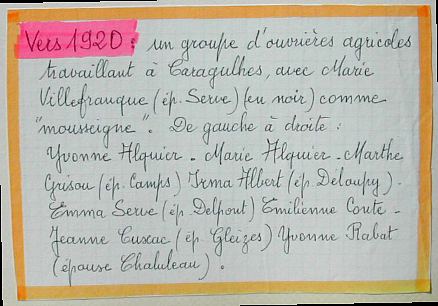 Vers 1920 : un groupe d'ouvrières agricoles
travaillant à Caragulhes, avec Marie
Villefranque (ép. Serve) (en noir) comme
"mousseigne". De gauche à droite :
Yvonne Alquier - Marie Alquier - Marthe
Grisou (ép. Camps) Irma Albert (ép. Déloupy) -
Emma Serve (ép. Delpout) Emilienne Coute -
Jeanne Cuxac (ép. Gleizes) Yvonne Rabat
(épouse Chaluleau).